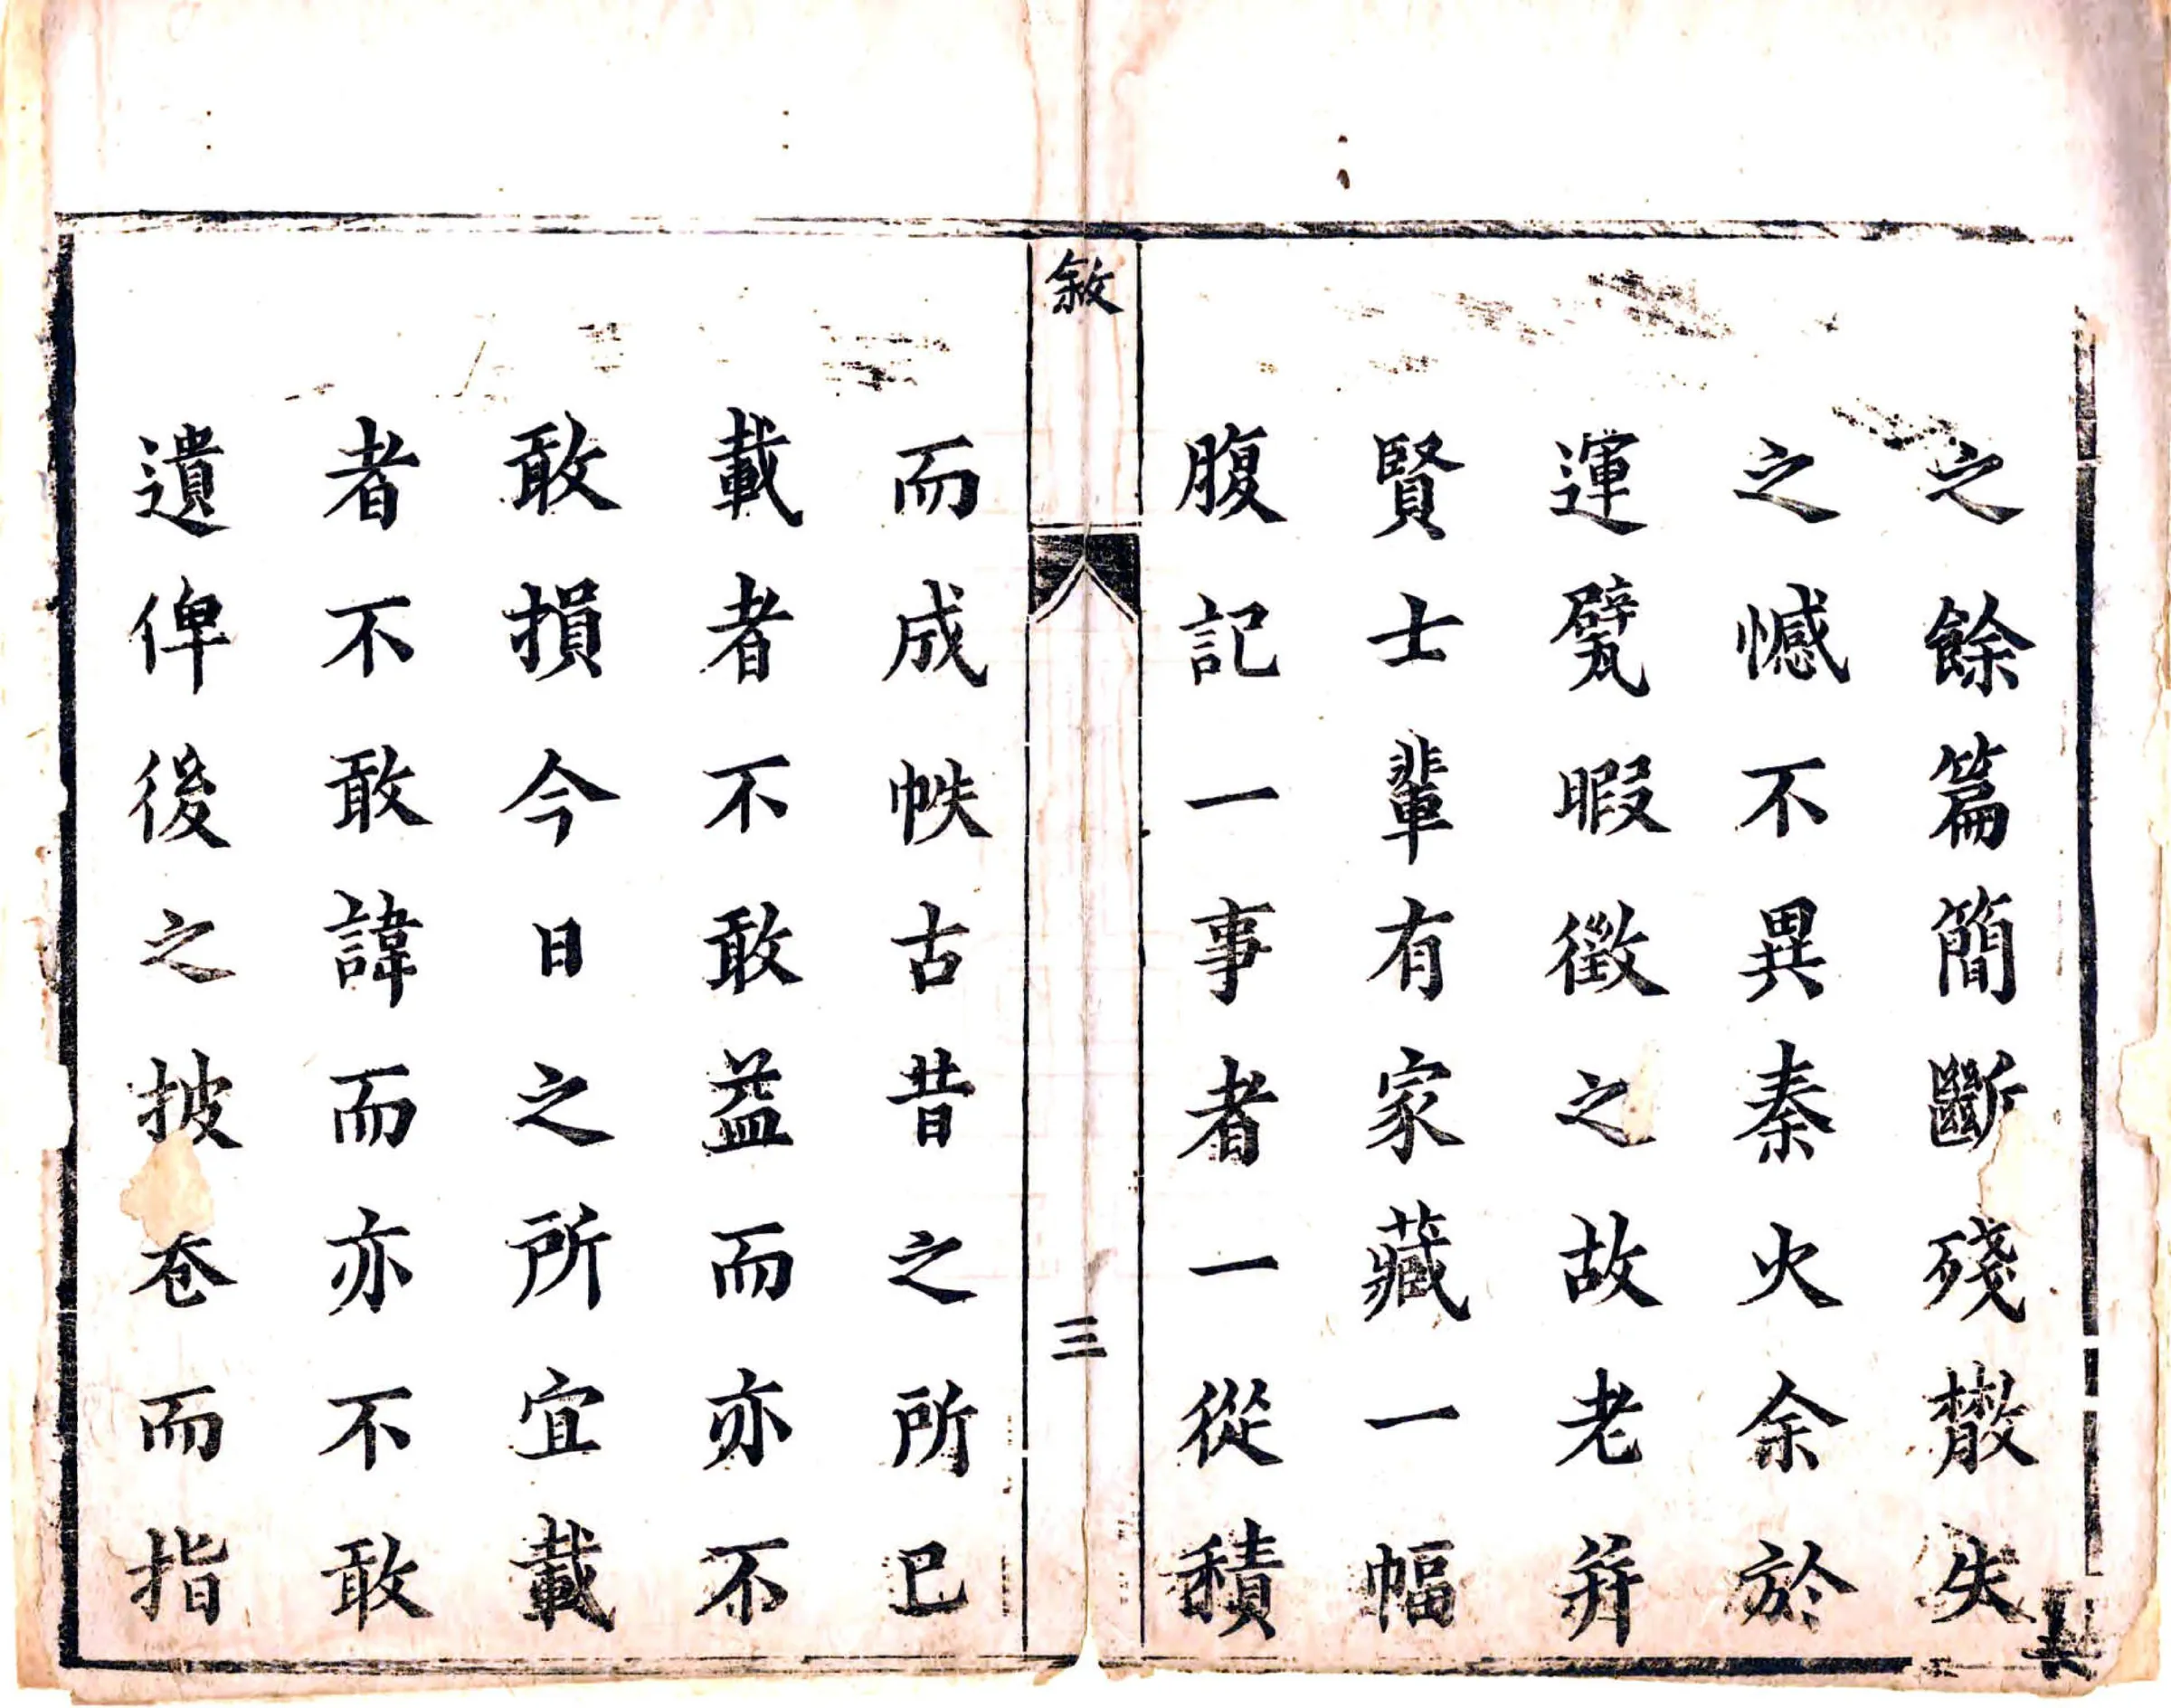 之餘篇簡斷殘散失
之憾不異秦火余於
運甓暇徵之故老并
賢士輩有家藏一幅
腹記一事者一從積
敘
三
而成帙古昔之所已
載者不敢益而亦不
敢損今日之所宜載
者不敢諱而亦不敢
遺俾後之披卷而指